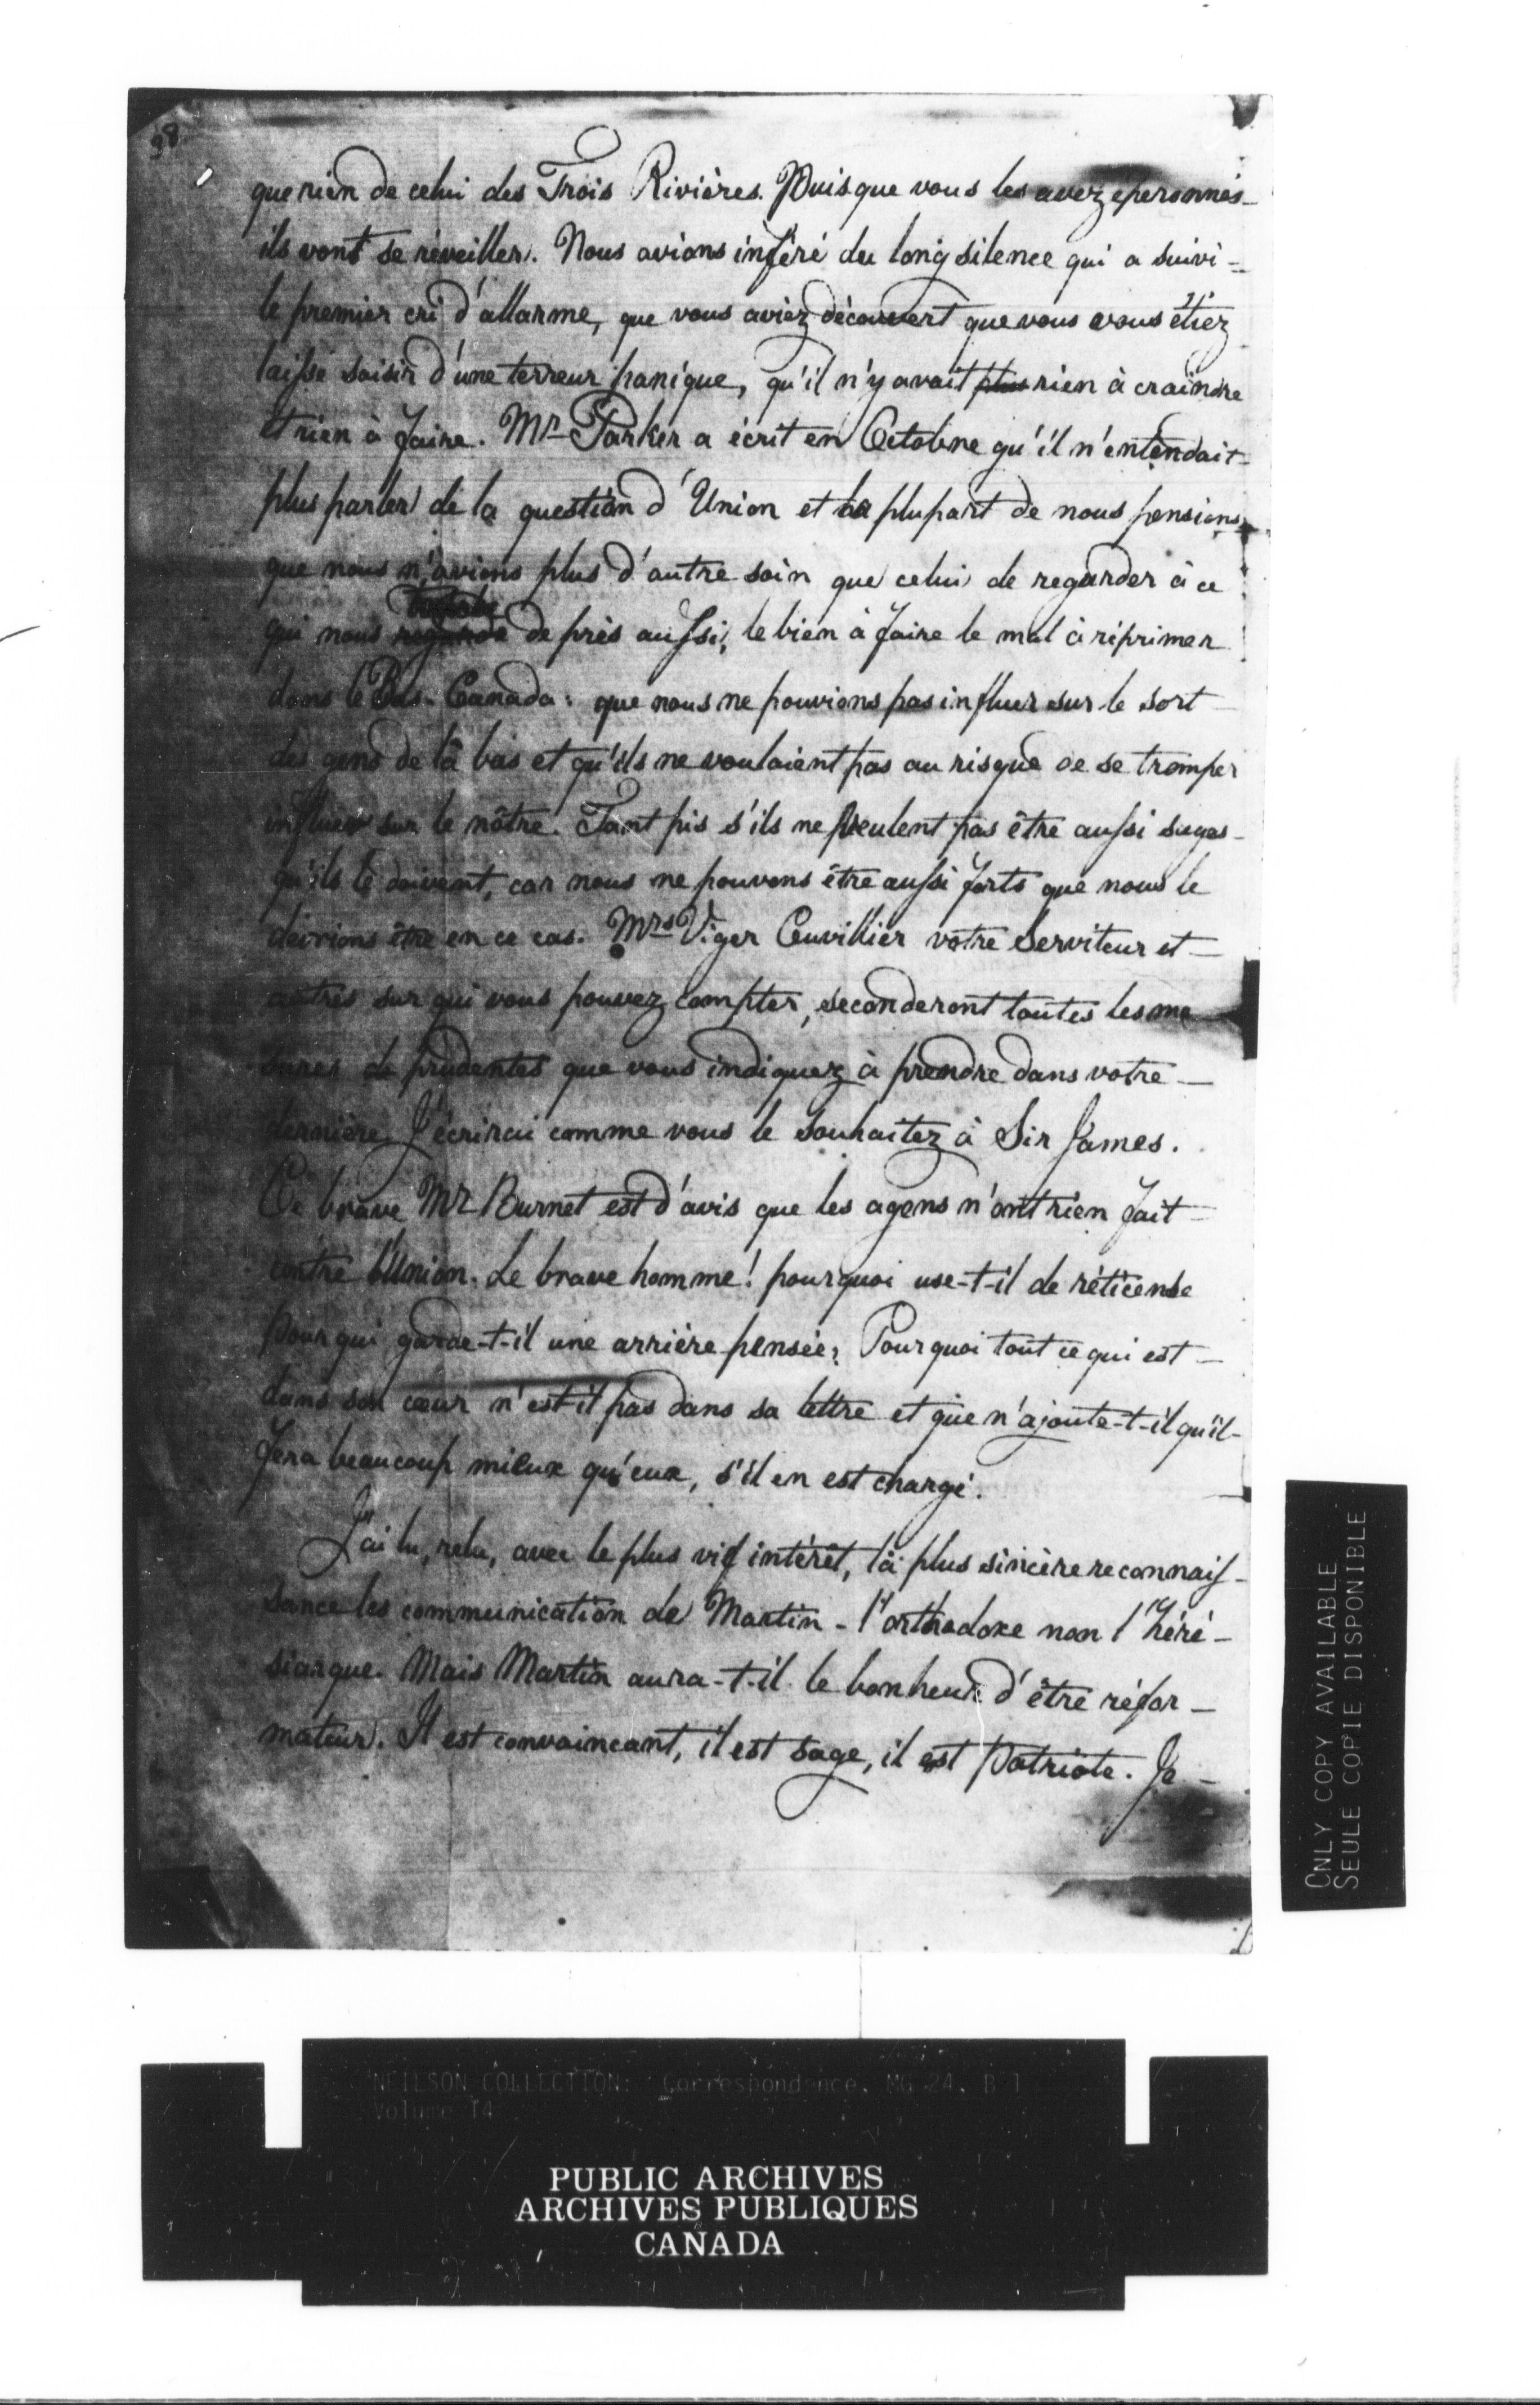 98
que rien de celui des Trois Rivières. Puisque vous les avez éperonnés
ils vont se réveiller. Nous avions inféré du long silence qui a suivi
le premier cri d'allarme, que vous aviez découvert que vous vous étiez
laissé saisir d'une terreur panique, qu'il n'y avait plus rien à craindre
et rien à faire. Mr Parker a écrit en Octobre qu'il n'entendait
plus parler de la question d'Union et la plupart de nous pensions
que nous n'avions plus d'autre soin que celui de regarder à ce
qui nous regarde de près aussi, le bien à faire le mal à réprimer
dans le Bas-Canada: que nous ne pouvions pas influer sur le sort
des gens de là bas et qu'ils ne voulaient pas au risque de se tromper
influer sur le nôtre. Tant pis s'ils ne veulent pas être aussi sages
qu'ils le doivent, car nous ne pouvons être aussi forts que nous le
devrions être en ce cas. Mrs Viger Cuvillier votre Serviteur et
autres sur qui vous pouvez compter, seconderont toutes les me
sures de prudentes que vous indiquez à prendre dans votre
dernière. J'écrirai comme vous le souhaitez à Sir James.
Ce brave Mr Burnet est d'avis que les agens n'ont rien fait
contre l'Union. Le brave homme! pourquoi use-t-il de réticense
pour qui garde-t-il une arrière pensée; Pourquoi tout ce qui est
dans son cœur n'est-il pas dans sa lettre et que n'ajoute-t-il qu'il
fera beaucoup mieux qu'eux, s'il en est chargé.
J'ai lu, relu, avec le plus vif intérêt, la plus sincère reconnais-
sance les communication de Martin - l'orthodoxe non l'héré-
siarque. Mais Martin aura-t-il le bonheur d'être réfor-
mateur. Il est convaincant, il est sage, il est Patriote. Je
ONLY COPY AVAILABLE
SEULE COPIE DISPONIBLE
NEILSON COLLECTION: Correspondence, MG 24, B 1
Volume 14
PUBLIC ARCHIVES
ARCHIVES PUBLIQUES
CANADA